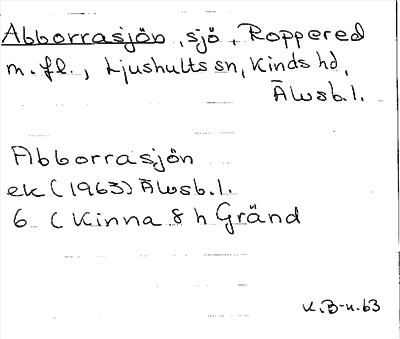 Abborrasjön, sjö, Roppered
m. fl., Ljushults sn, Kinds hd,
Älvsb. l.
Abborrasjön
ek (1963) Älvsb. l.
6 (Kinna 8 h Gränd
K.B-n.63